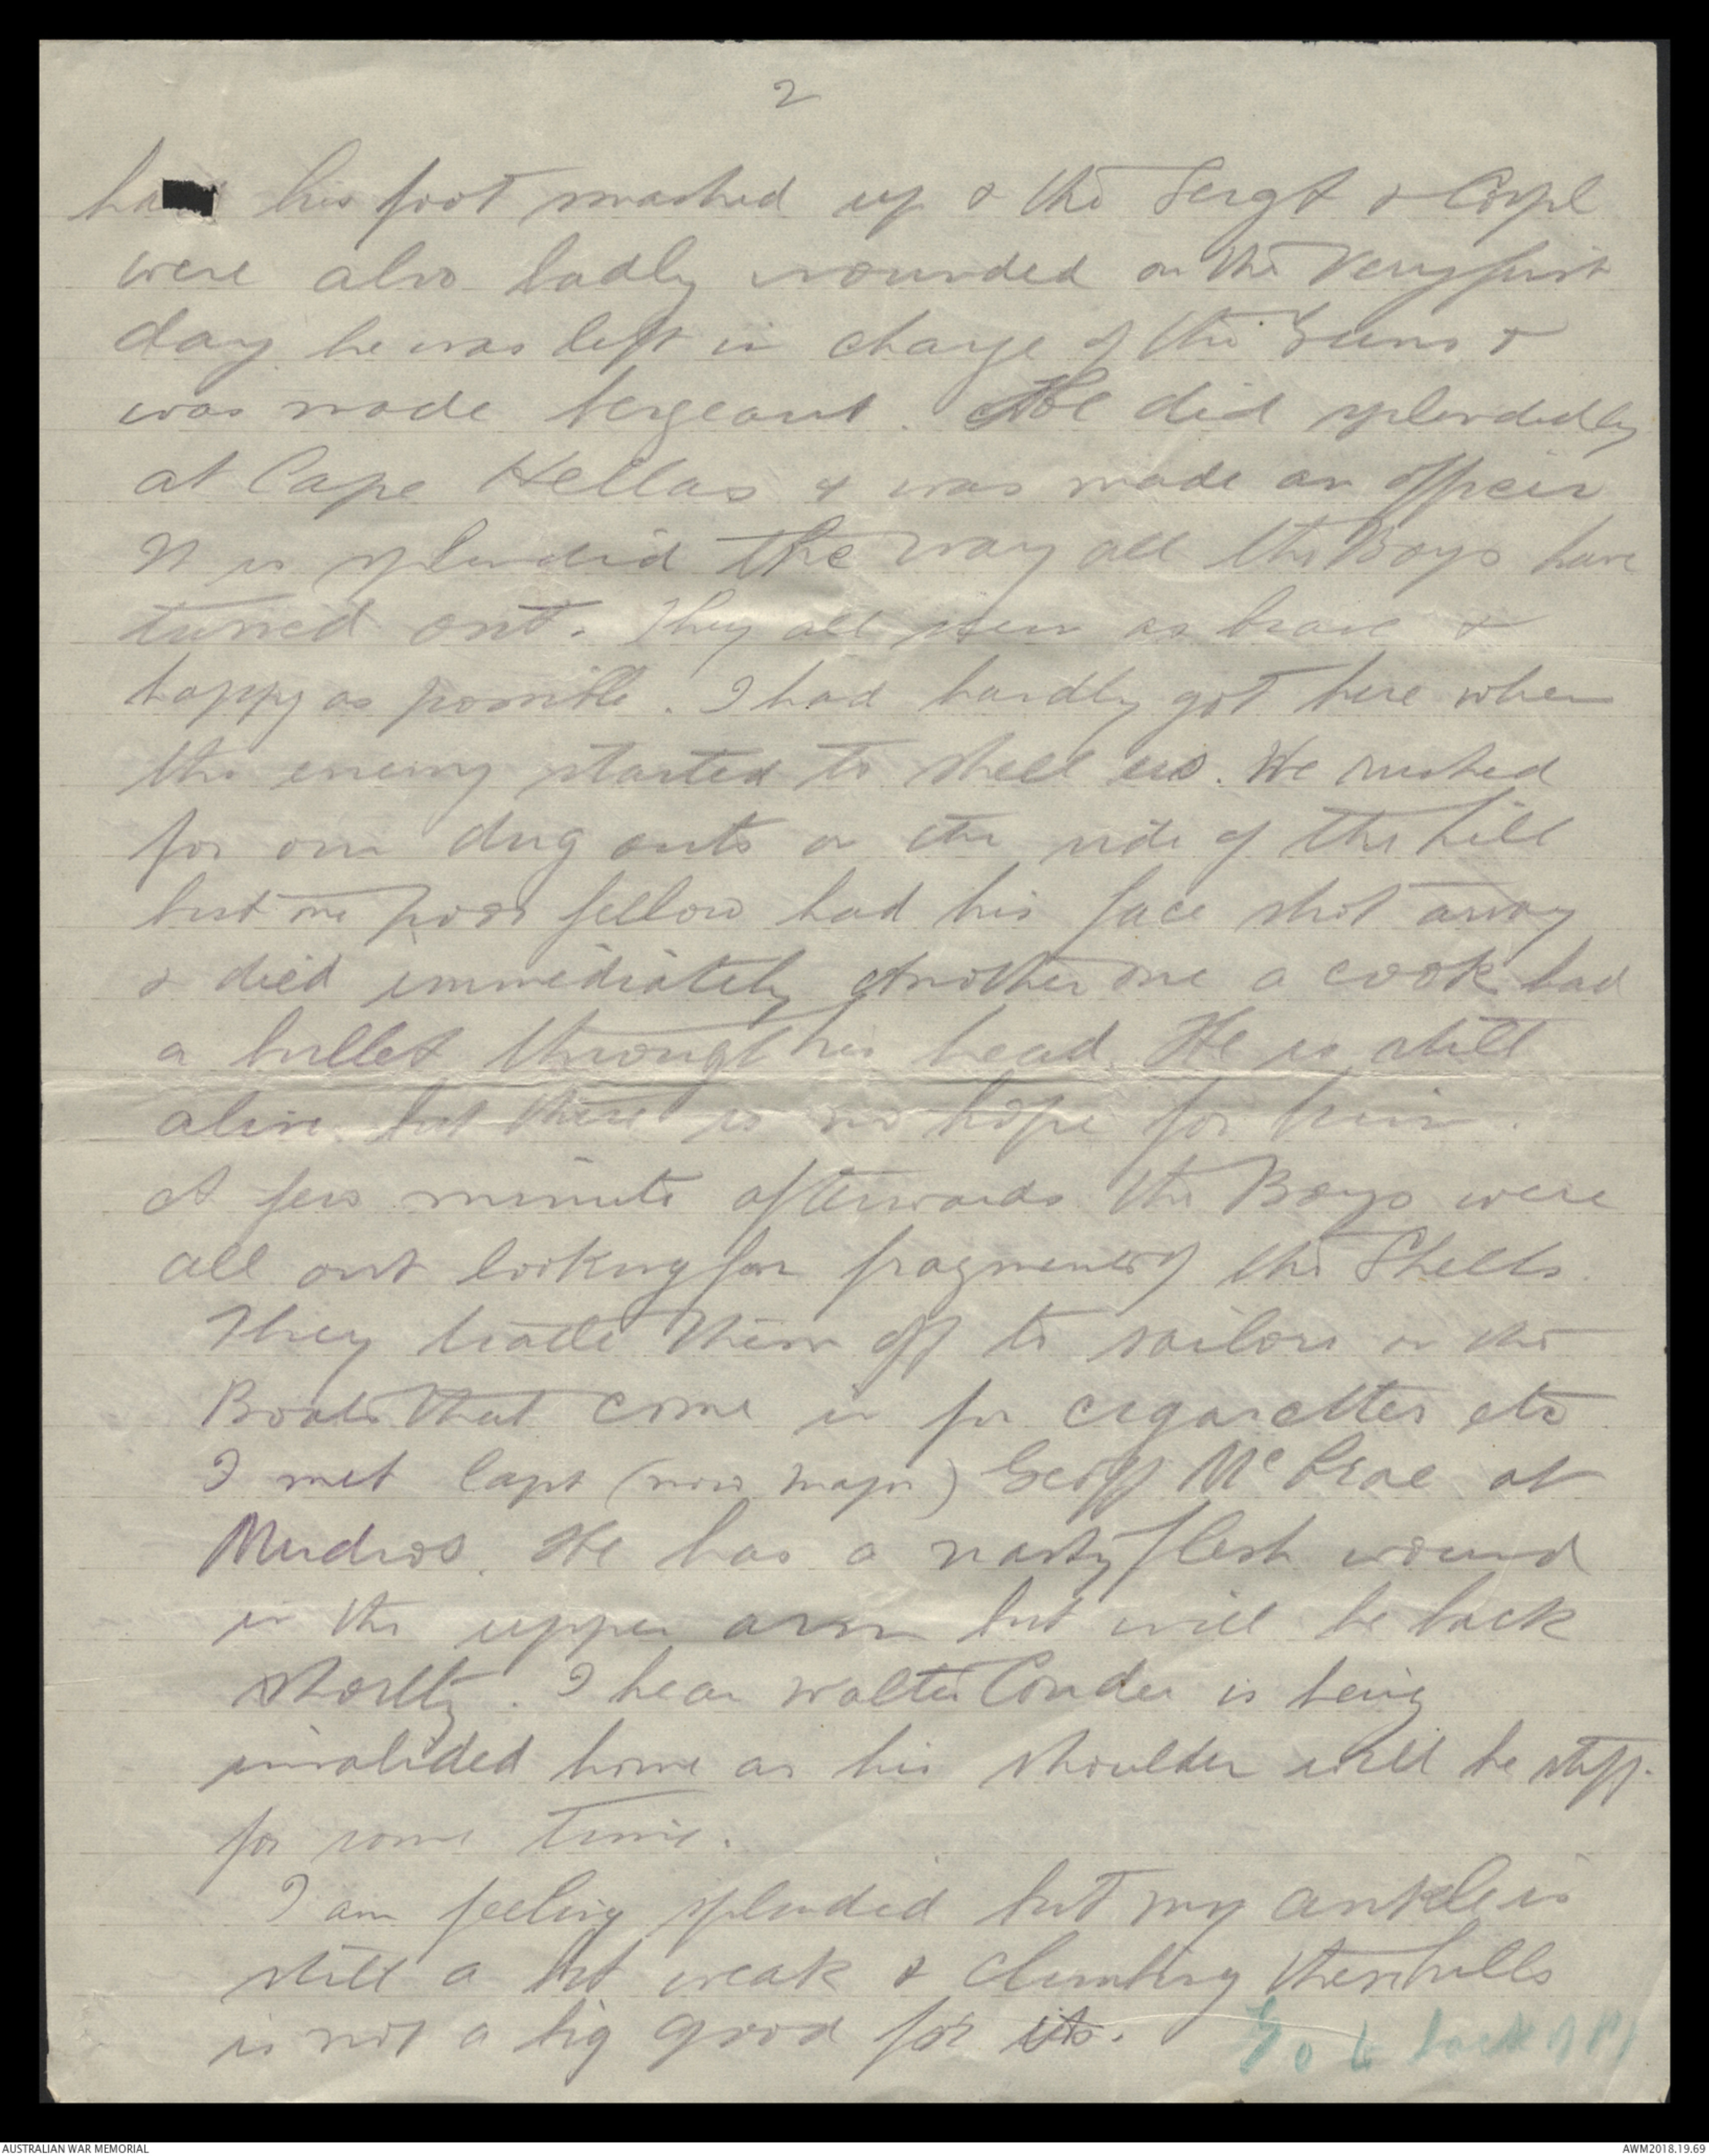 2
ha his foot smashed up & the Sergt & Corpl
were also badly wounded on the very first
day he was left in charge of the Guns &
was made Sergeant. He did splendidly
at Cape Hellas & was made an officer
It is splendid the way all the Boys have
turned out. They all seem as brave &
happy as possible. I had hardly got here when
the enemy started to shell us. We rushed
for our dug outs on the side of the hill
but one poor fellow had his face shot away
& died immediately Another one a cook had
a bullet through his head. He is still
alive but there is no hope for him.
A few minute afterwards the Boys were
all out looking for fragments of the Shells.
They trade them off to sailors on the
Boats that come in for cigarettes etc
I met Capt (now Major) Geoff McCrae at
Mudros. He has a nasty flesh wound
in the upper arm but will be back
shortly. I hear Walter Conder is being
invalided home as his shoulder will be stiff
for some time.
I am feeling splendid but my ankle is
still a bit weak & climbing these hills
is not a big good for it.
Go to back of P1
AUSTRALIAN WAR MEMORIAL
AWM2018.19.69